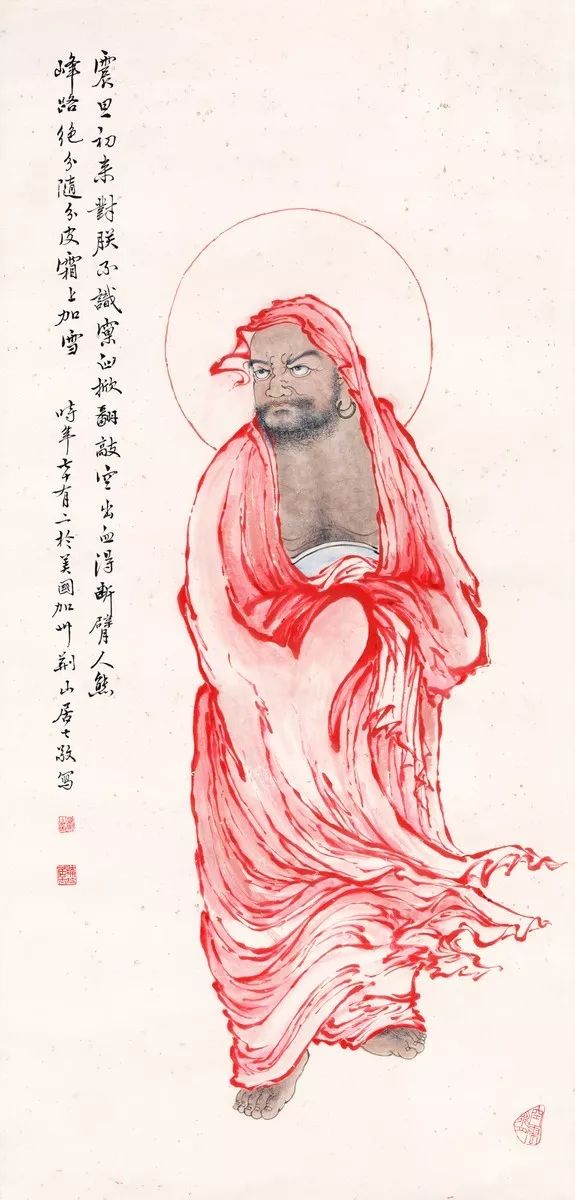 震旦初来對朕不識窠臼掀翻敲空出血得斷臂人熊
峰路絕分隨分皮霜上加雪 時年七十有二於美國加州荊山居士敬寫